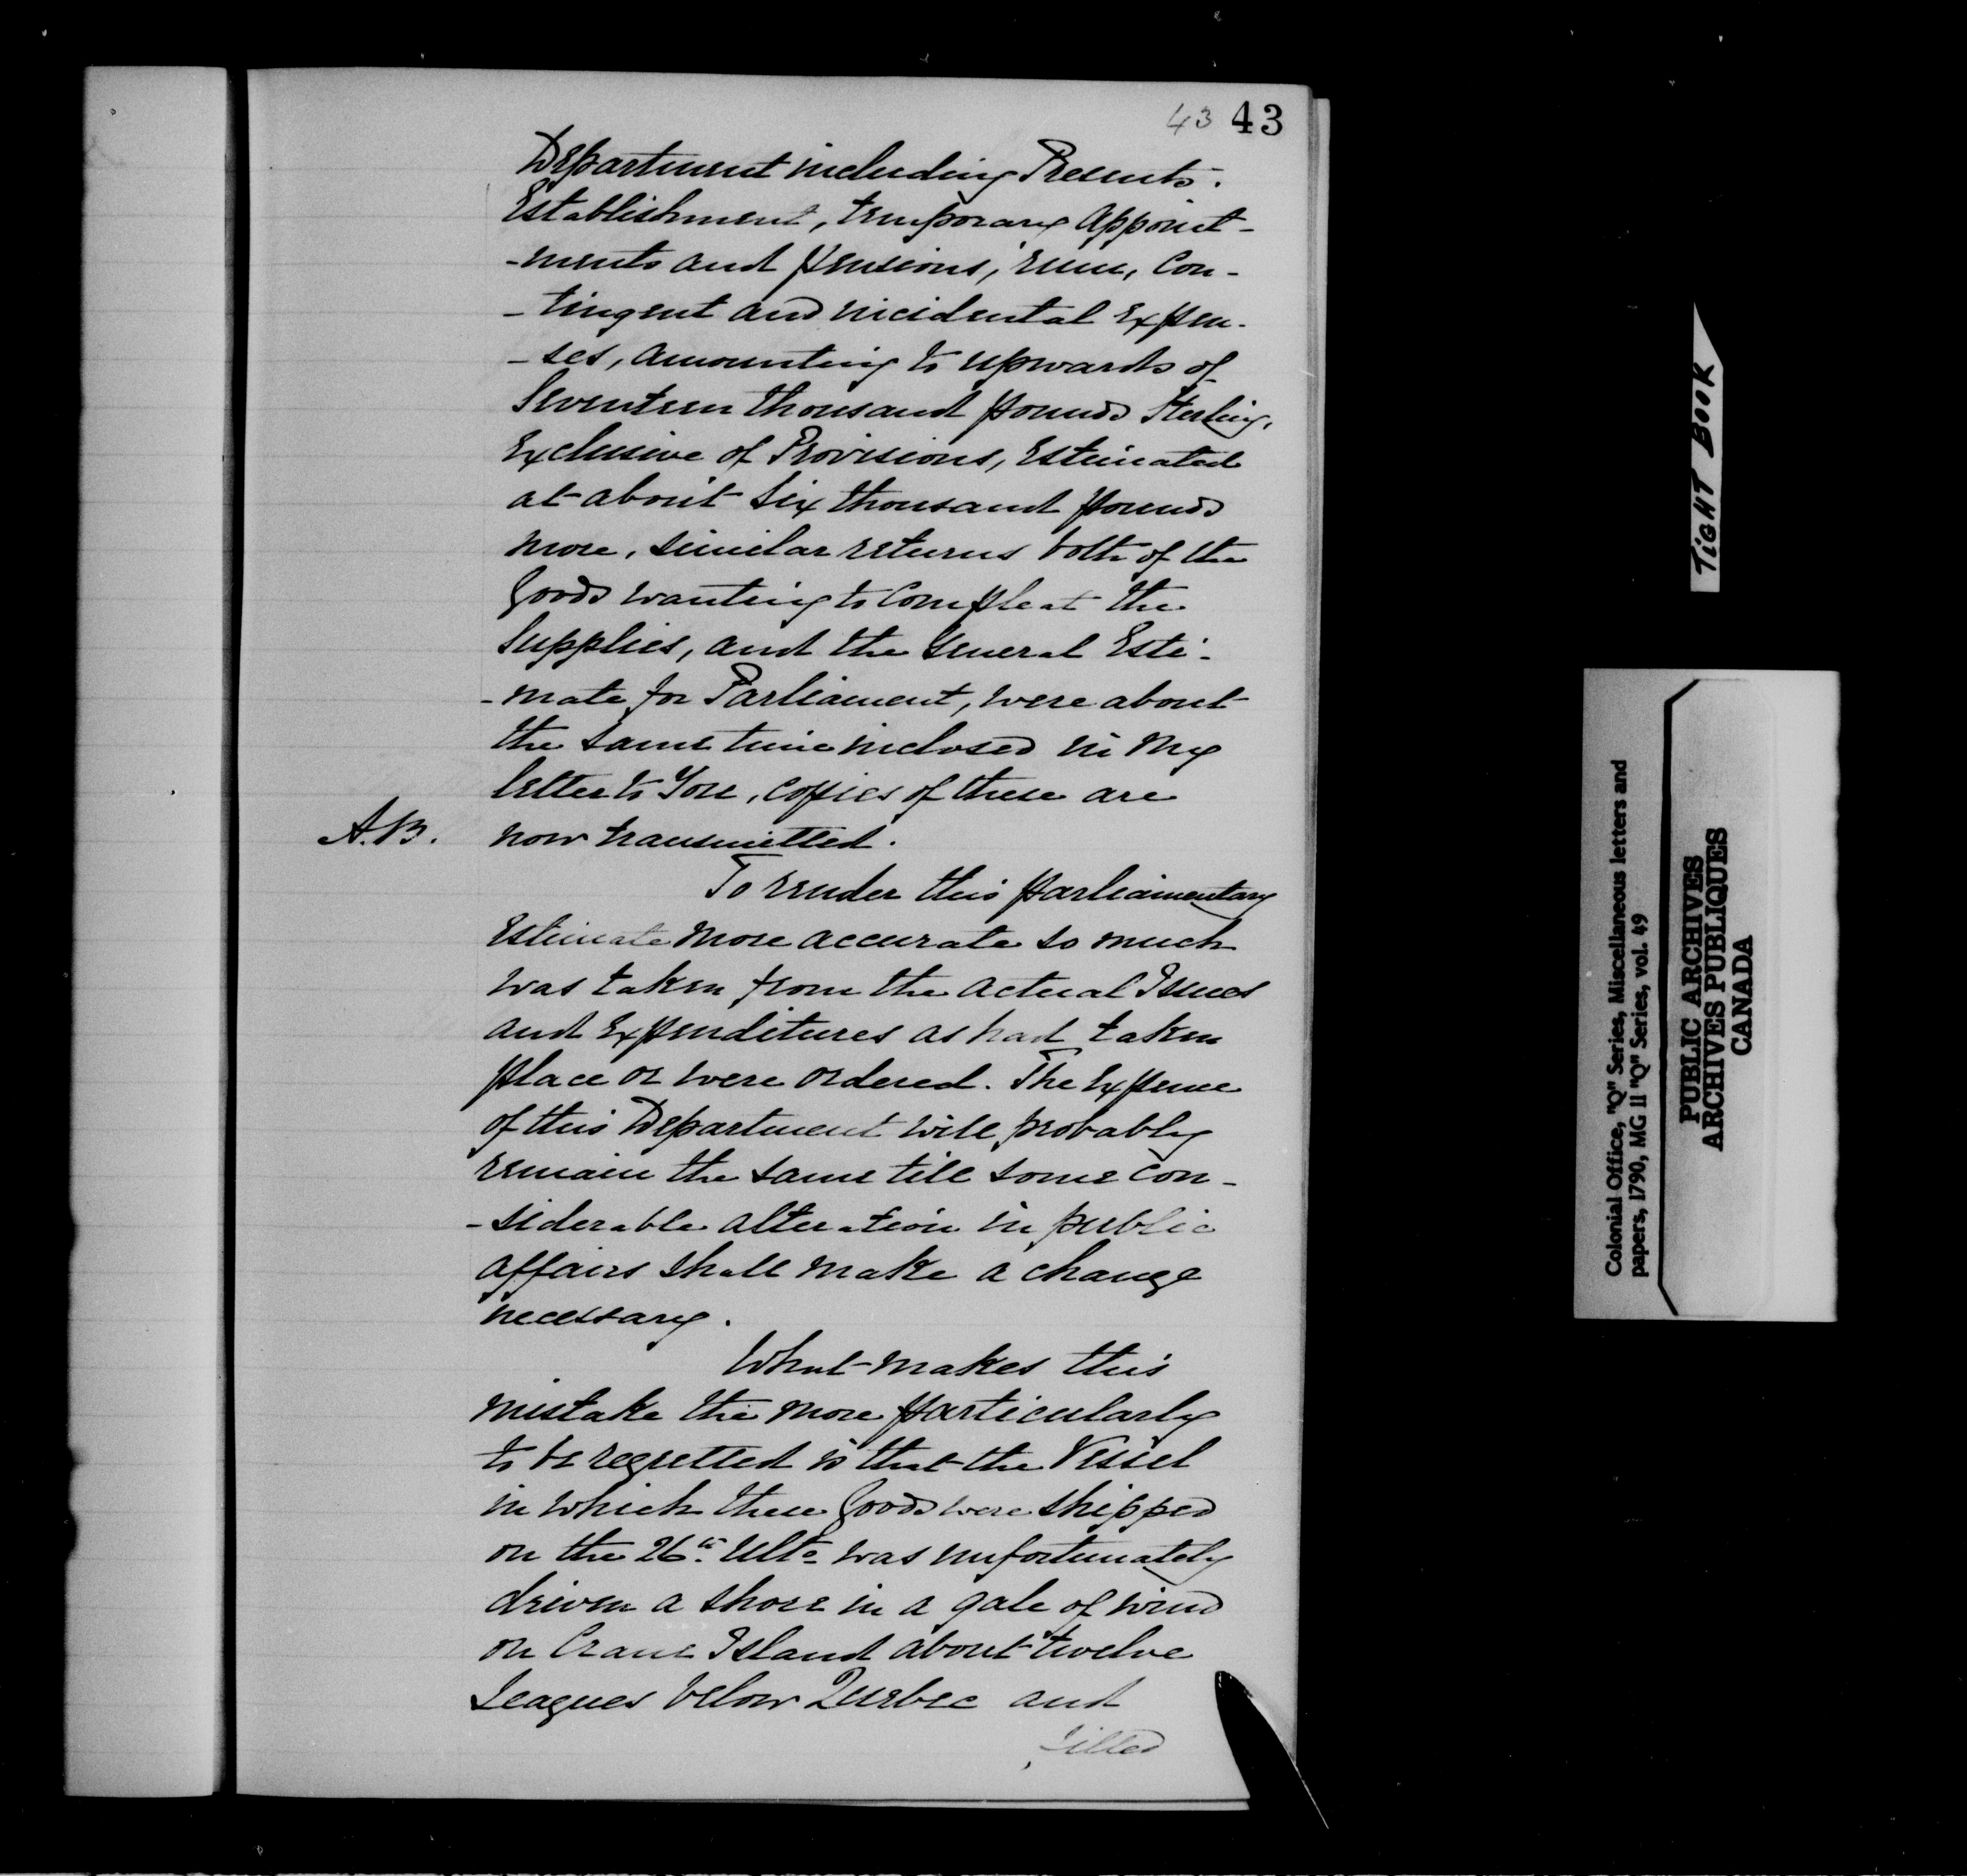 43 43
Department including Presents.
Establishment, temporary appoint-
-ments and pensions, rum, Con-
-tingent and incidental Expen-
-ses, amounting to upwards of
Seventeen thousand pounds Sterling,
Exclusive of Provisions, Estimated
at about Six thousand pounds
more, similar returns both of the
Goods wanting to Compleat the
Supplies, and the General Esti-
-mate for Parliament, were about
the same time inclosed in my
letter to You, copies of these are
A.B. now transmitted.
To render this parliamentary
Estimate more accurate so much
was taken from the actual Issues
and Expenditures as had taken
place or were ordered. The Expence
of this Department will probably
remain the same till some con-
-siderable alteration in public
affairs shall make a change
necessary.
What makes this
mistake the more particularly
to be regretted is that the Vessel
in which these Goods were shipped
on the 26th Ulto was unfortunately
driven a shore in a gale of wind
on Crane Island about twelve
Leagues below Quebec and
filled
TIGHT BOOK
Colonial Office, "Q" Series, Miscellaneous letters and
papers, 1790, MG 11 "Q" Series, vol. 49
PUBLIC ARCHIVES
ARCHIVES PUBLIQUES
CANADA